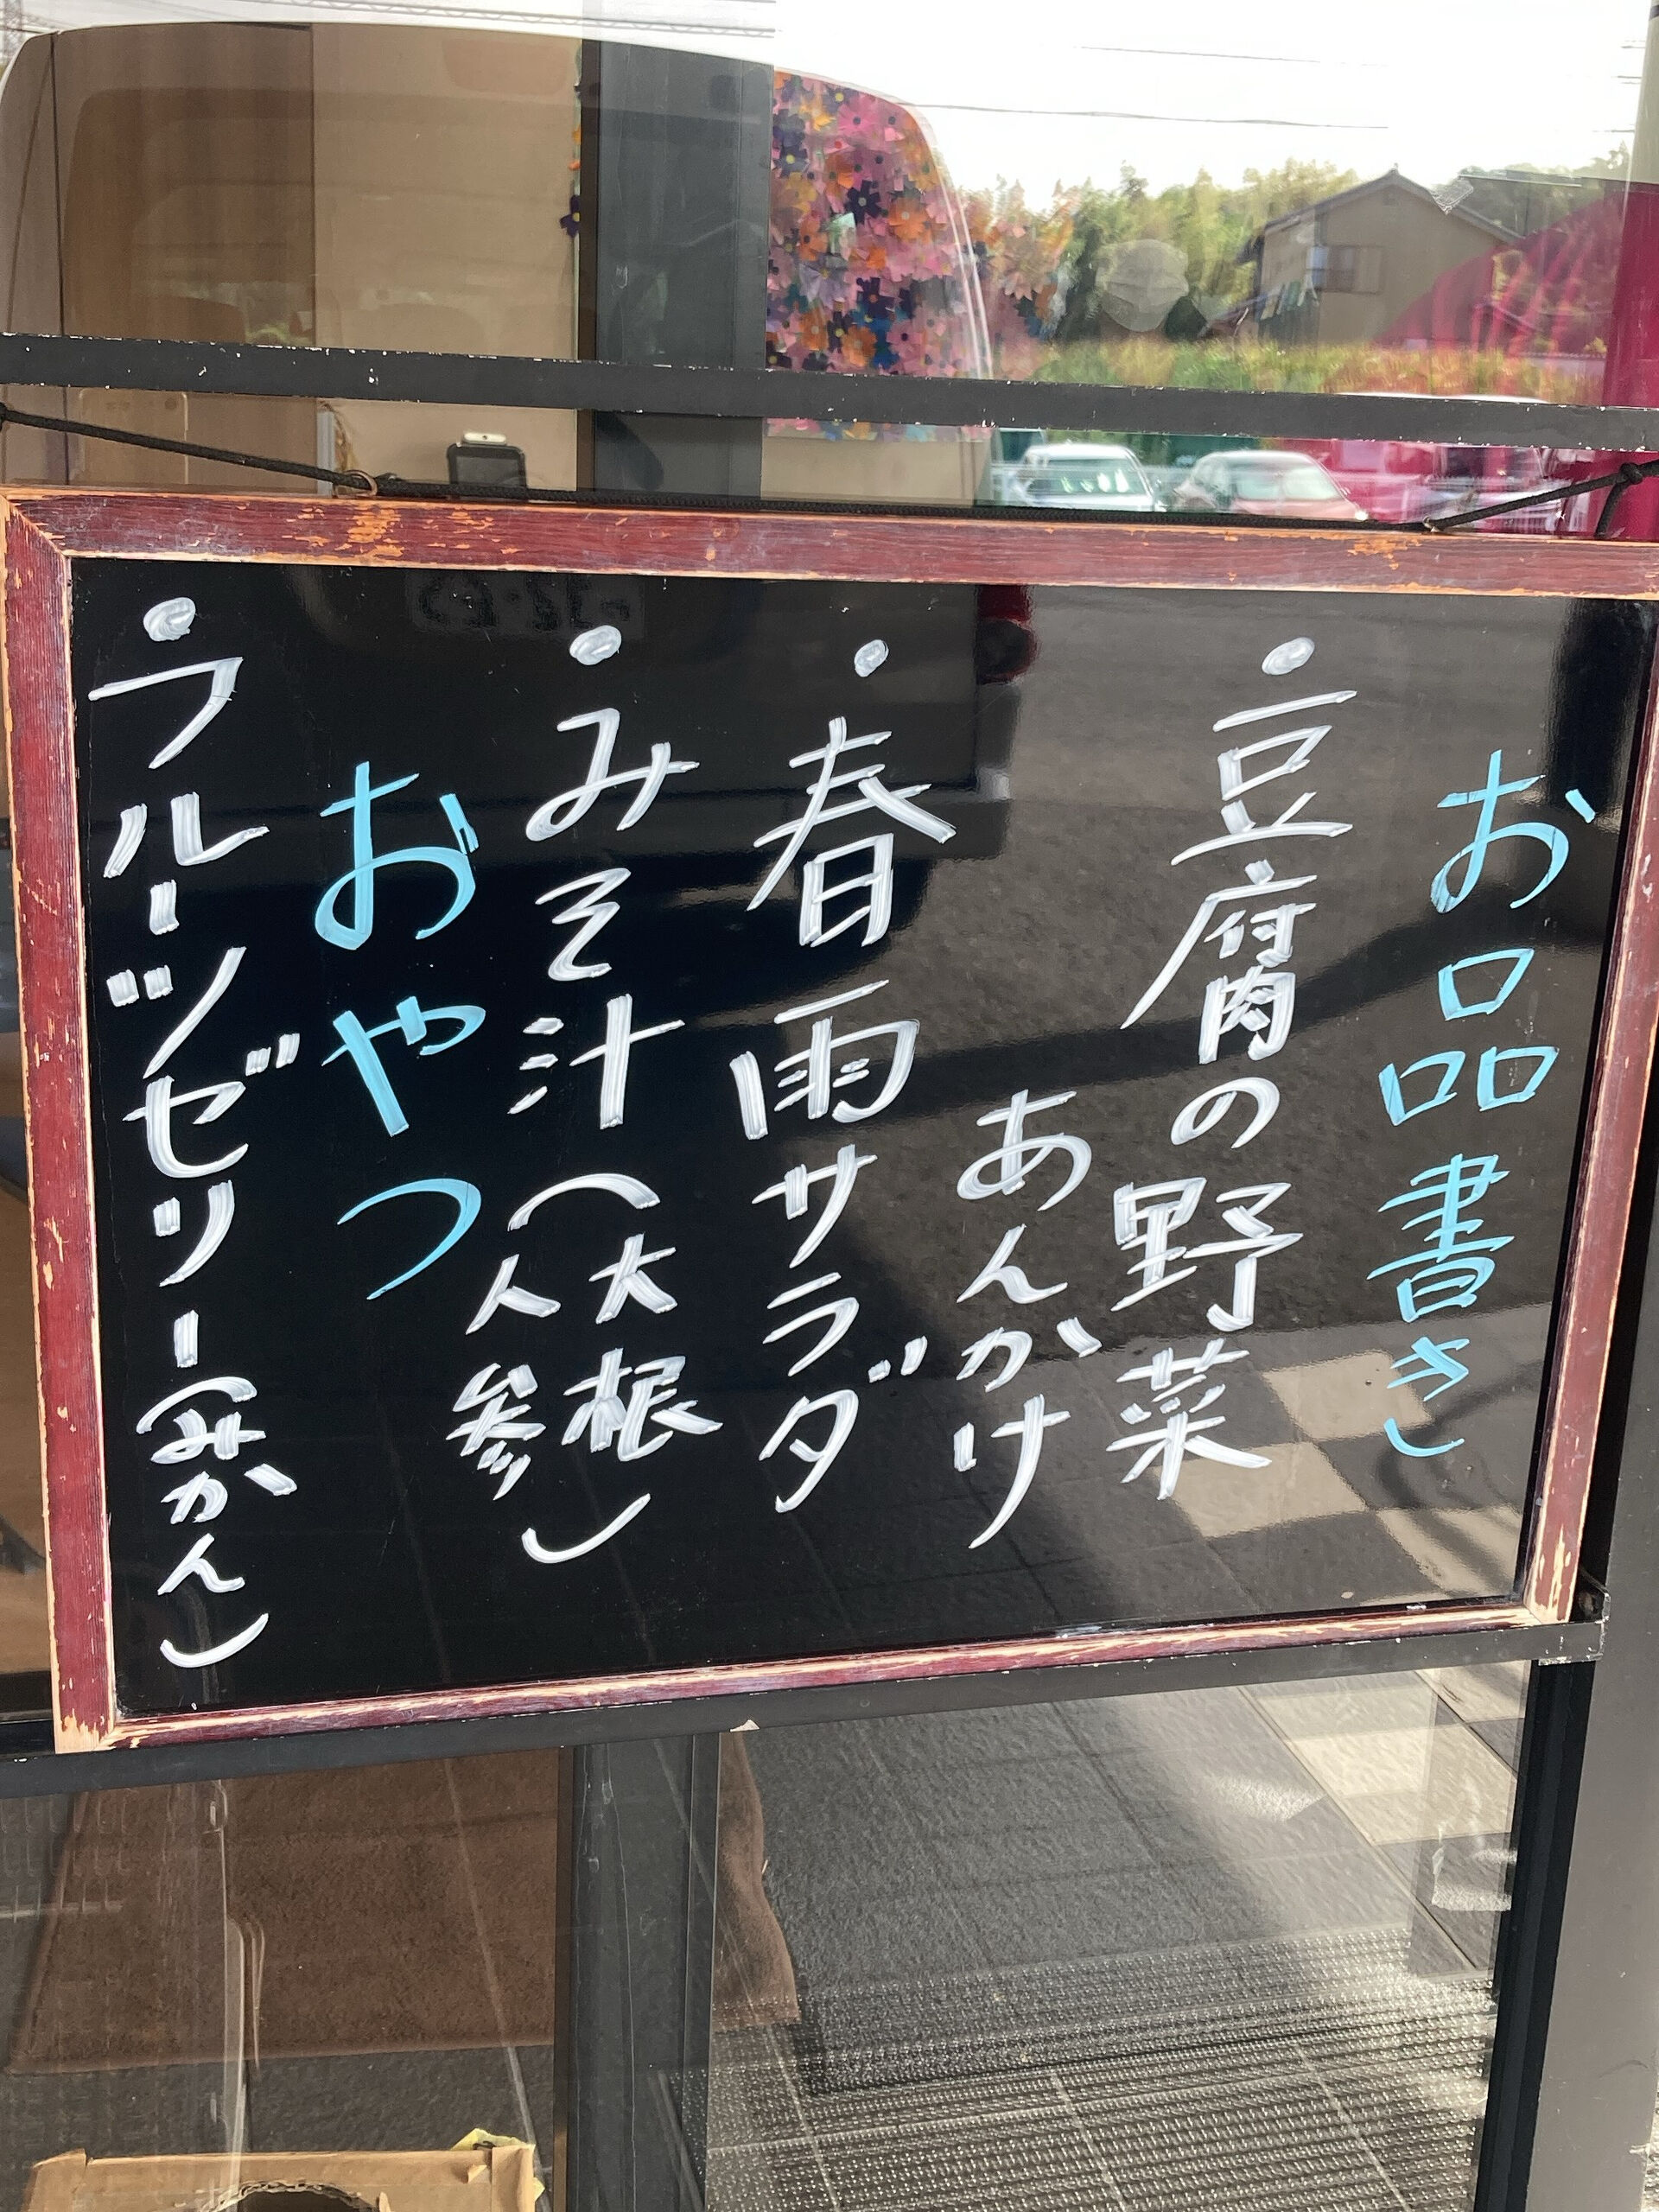 お品書き
・豆腐の野菜
あんかけ
・春雨サラダ
・みそ汁（大根
人参）
おやつ
・フルーツゼリー（みかん）